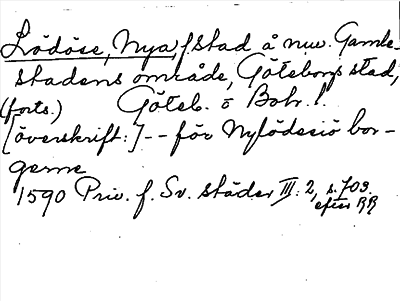 Lödöse, Nya, f. stad å nuv. Gamle-
stadens område, Göteborgs stad,
(forts.) Göteb. o Bohr. l.
[överskrift:] -- för Nylödesiö bor-
gerne
1590 Priv. f. Sv. städer III: 2, s. 703.
efter RR